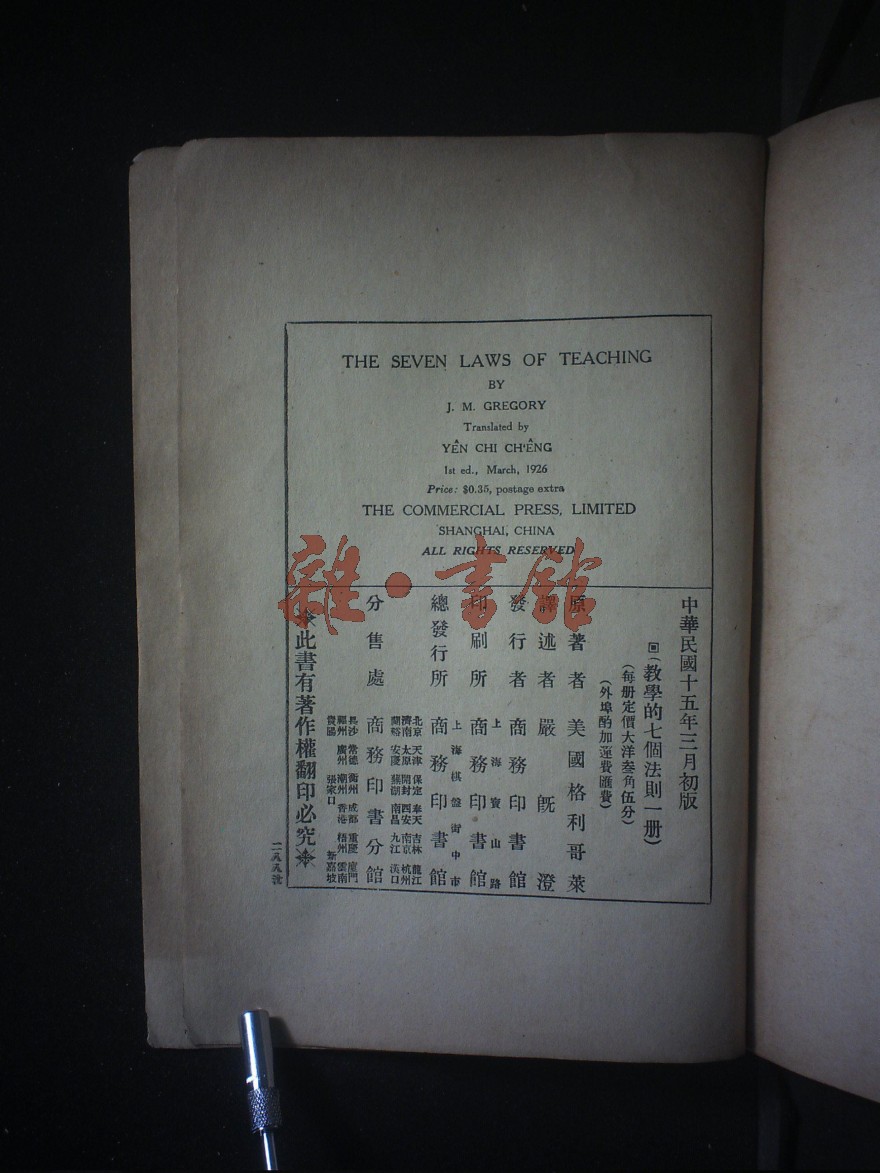 THE SEVEN LAWS OF TEACHING
BY
J. M. GREGORY
Translated by
YÊN CHI CH'ÊNG
1st ed., March, 1926
Price: $0.35, postage extra
THE COMMERCIAL PRESS, LIMITED
SHANGHAI, CHINA
ALL RIGHTS RESERVED
雜·書館
中華民國十五年三月初版
回(教學的七個法則一册)
(每册定價大洋叁角伍分)
(外埠酌加運費匯費)
原著者 美國格利哥萊
譯述者 嚴旣澄
發行者 商務印書館
上海寶山路
印刷所 商務印書館
上海棋盤街中市
總發行所 商務印書館
北京 天津 保定 奉天 吉林 龍江
濟南 太原 開封 西安 南京 杭州
蘭谿 安慶 蕪湖 南昌 九江 漢口
分售處 商務印書分館
長沙 常德 衡州 成都 重慶 廈門
福州 廣州 潮州 香港 梧州 雲南
貴陽 張家口 新嘉坡
此書有著作權翻印必究